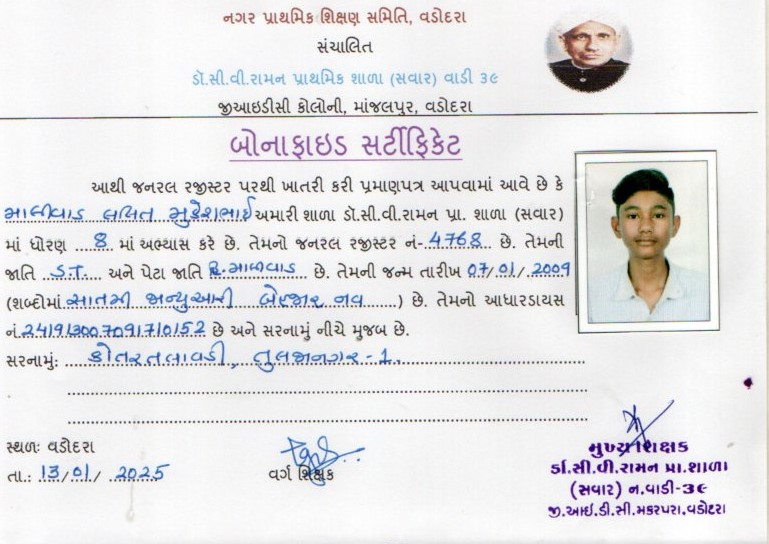 નગર પ્રાથમિક શિક્ષણ સમિતિ, વડોદરા
સંચાલિત
ડૉ.સી.વી.રામન પ્રાથમિક શાળા (સવાર) વાડી ૩૯
જીઆઇડીસી કોલોની, માંજલપુર, વડોદરા
બોનાફાઇડ સર્ટીફિકેટ
આથી જનરલ રજીસ્ટર પરથી ખાતરી કરી પ્રમાણપત્ર આપવામાં આવે છે કે
માળીવાડ લલિત મુકેશભાઈ અમારી શાળા ડૉ.સી.વી.રામન પ્રા. શાળા (સવાર)
માં ધોરણ 8 માં અભ્યાસ કરે છે. તેમનો જનરલ રજીસ્ટર નં- 4768 છે. તેમની
જાતિ S.T. અને પેટા જાતિ માળીવાડ છે. તેમની જન્મ તારીખ 07/01/2009
(શબ્દોમાં સાતમી જાન્યુઆરી બેહજાર નવ) છે. તેમનો આધારડાયસ
નં. 241913007091710152 છે અને સરનામું નીચે મુજબ છે.
સરનામું: કોતરતલાવડી, તુલજાનગર-1.
સ્થળ: વડોદરા
તા.: 13/01/2025
વર્ગ શિક્ષક
મુખ્ય શિક્ષક
ર્ડા.સી.વી.રામન પ્રા.શાળા
(સવાર) ન.વાડી-૩૯
જી.આઈ.ડી.સી.મકરપરા,વડોદરા